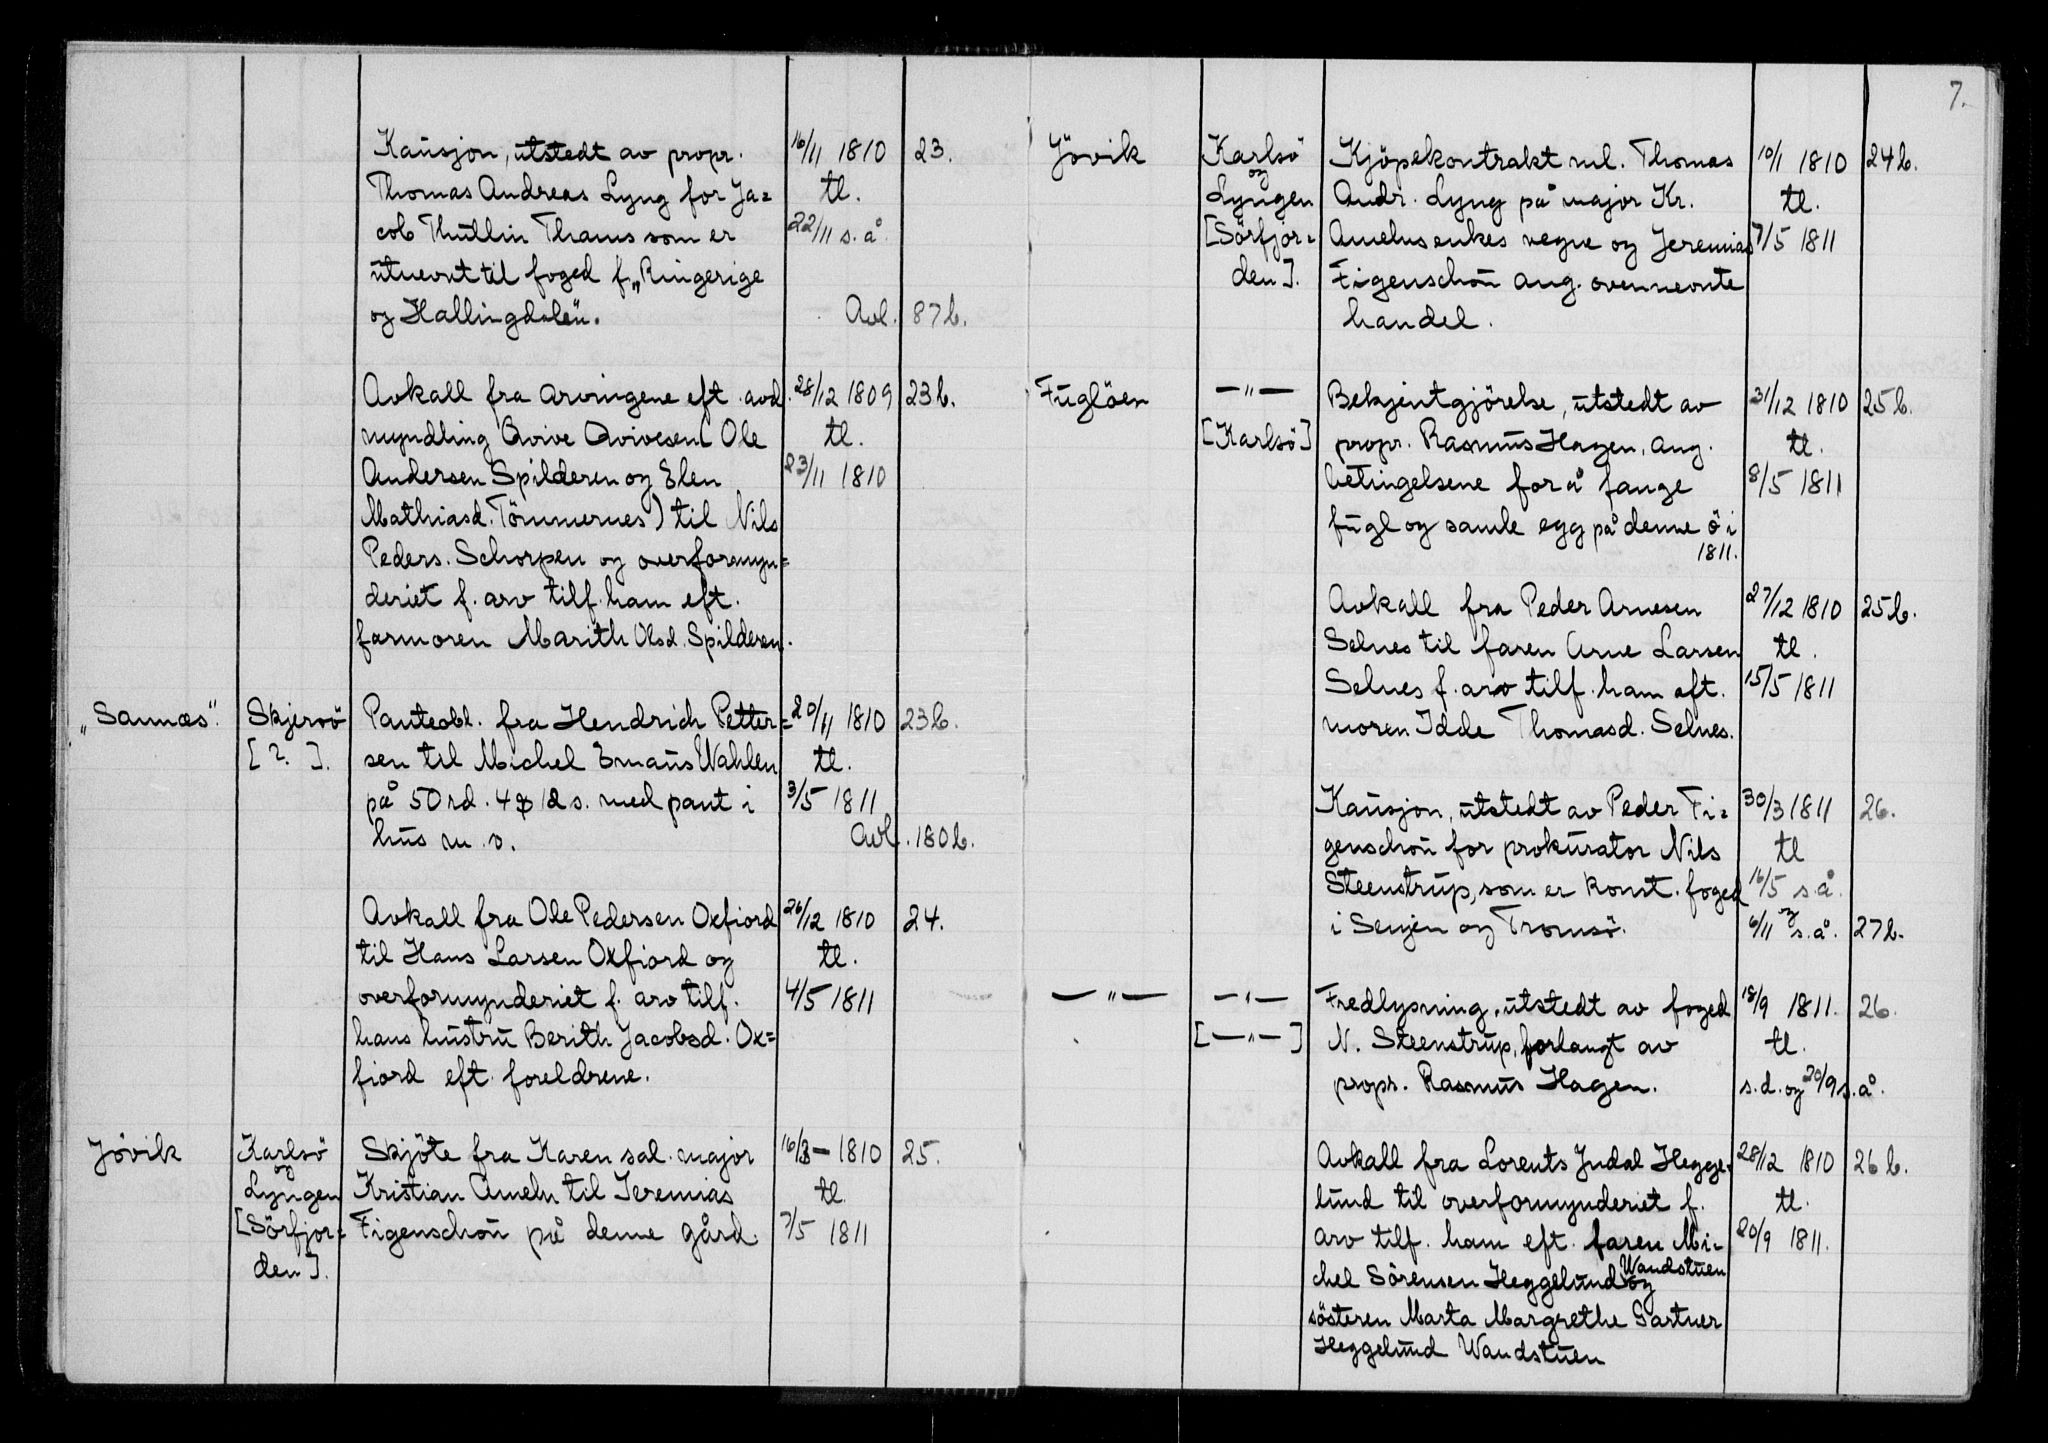 Kausjon, utstedt av propr. 16/11 1810 23.
Thomas Andreas Lyng for Ja= tl.
cob Thullin Thams som er 22/11 s. å.
utnevnt til foged f. „Ringerige
og Hallingdalen“. Avl. 87b.
Avkall fra arvingene eft. avd. 28/12 1809 23b.
myndling Qvive Qvivesen (Ole tl.
Andersen Spilderen og Elen 23/11 1810
Mathiasd. Tömmernes) til Nils
Peders. Schorpen og overformyn=
deriet f. arv tilf. ham eft.
farmoren Marith Olsd. Spilderen.
„Sannæs“. Skjervö Panteobl. fra Hendrich Petter= 20/11 1810 23b.
[?]. sen til Michel Emaus Wahlen tl.
på 50 rd. 4 12 s. med pant i 3/5 1811
hus m. v. Avl. 180b.
Avkall fra Ole Pedersen Oxfiord 26/12 1810 24.
til Hans Larsen Oxfiord og tl.
overformynderiet f. arv tilf. 4/5 1811
hans hustru Berith Jacobsd. Ox=
fiord eft. foreldrene.
Jövik Karlsö Skjöte fra Karen sal. major 16/3 – 1810 25.
og
Lyngen Kristian Ameln til Jeremias tl.
[Sörfjor= Figenschou på denne gård. 7/5 1811
den].
7.
Jövik Karlsö Kjöpekontrakt ml. Thomas 10/1 1810 24b.
og
Lyngen Andr. Lyng på major Kr. tl.
[Sörfjor= Amelns enkes vegne og Jeremias 7/5 1811
den]. Figenschou ang. ovennevnte
handel.
Fuglöen —„— Bekjentgjörelse, utstedt av 31/12 1810 25b.
[Karlsö] propr. Rasmus Hagen, ang. tl.
betingelsene for å fange 8/5 1811
fugl og samle egg på denne ö i
1811.
Avkall fra Peder Arnesen 27/12 1810 25b.
Selnes til faren Arne Larsen tl.
Selnes f. arv tilf. ham eft. 15/5 1811
moren Idde Thomasd. Selnes.
Kausjon, utstedt av Peder Fi= 30/3 1811 26.
genschou for prokurator Nils tl
Steenstrup, som er konst. foged 16/5 s. å.
og
i Senjen og Tromsö. 6/11 s. å. 27b.
—„— —„— Fredlysning, utstedt av foged 18/9 1811. 26.
[—„—] N. Steenstrup, forlangt av tl.
propr. Rasmus Hagen. s. d. og 20/9 s. å.
Avkall fra Lorents Jndal Hegge= 28/12 1810 26b.
lund til overformynderiet f. tl.
arv tilf. ham eft. faren Mi= 20/9 1811.
Wandstuen
chel Sörensen Heggelund og
sösteren Marta Margrethe Gartner
Heggelund Wandstuen